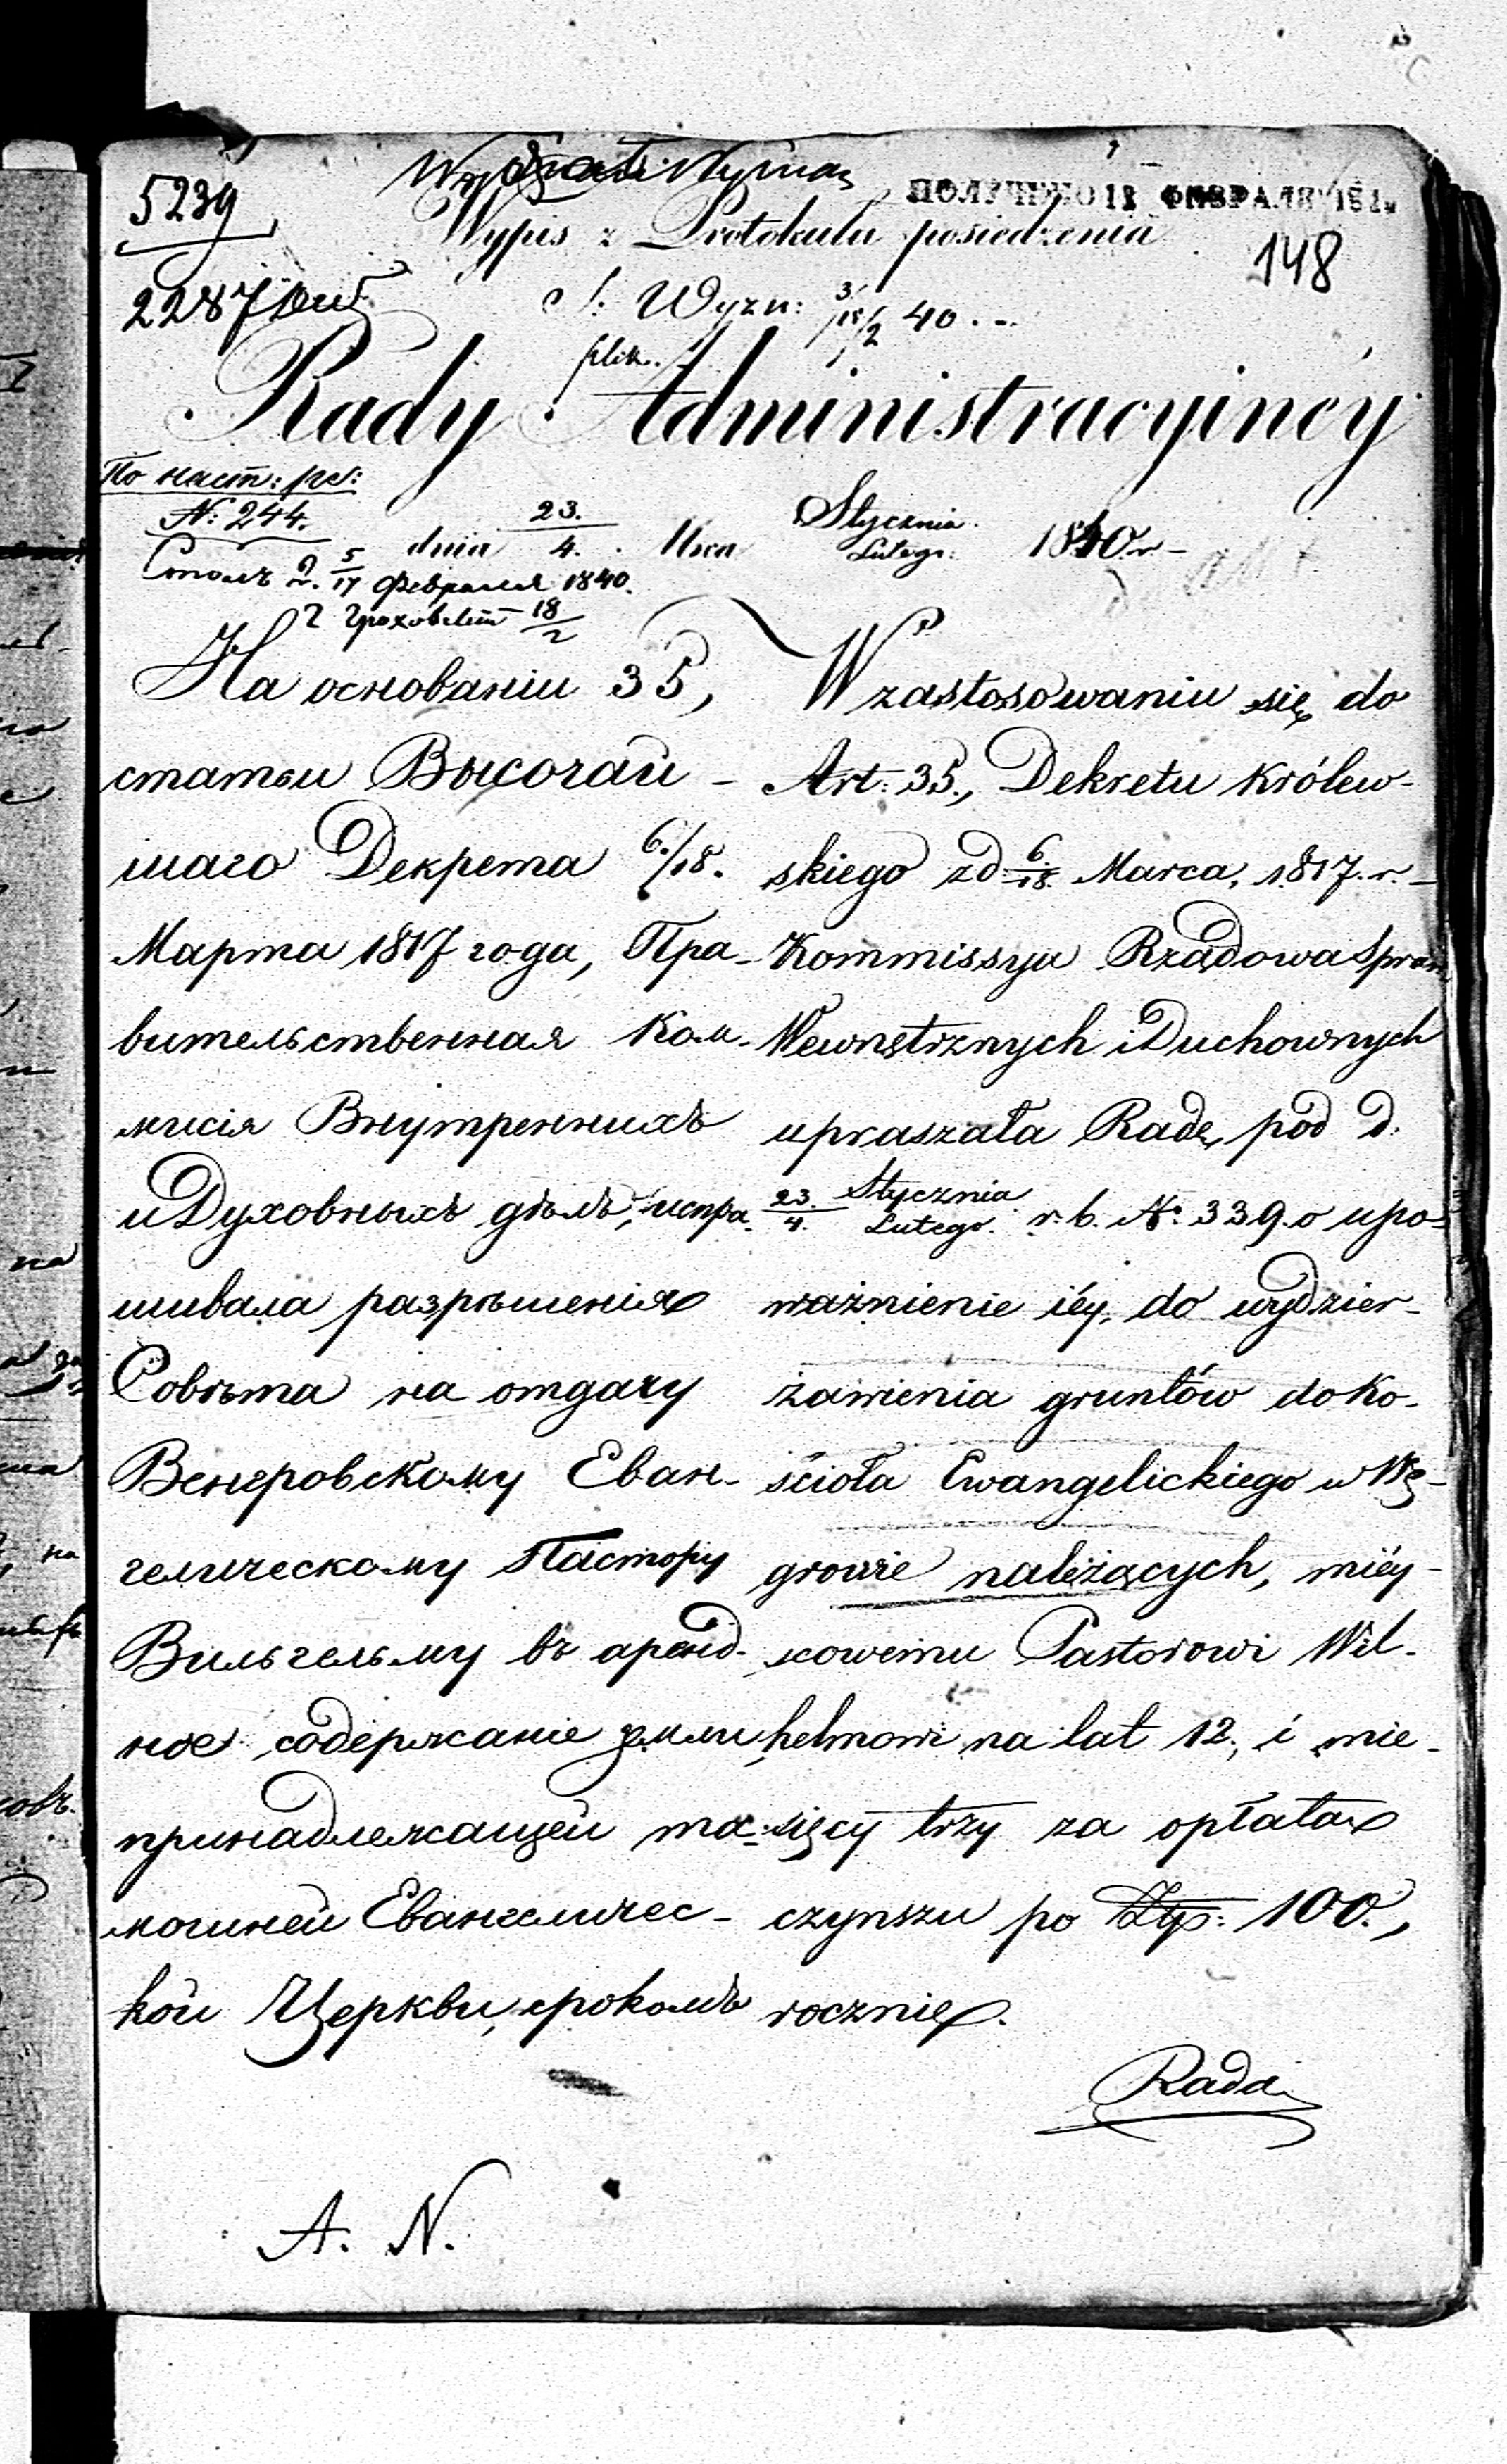 5239
ПОЛУЧЕНО 13 ФЕВРАЛЯ 184
Wypis z Protokułu posiedzenia
148
2287
Wyzn: 3/15/2 40.
plik.
Rady Administracyinéy
По наст: ре:
№: 244.
dnia 23./4. Mca Stycznia/Lutego: 1840 r
Столъ 2. 5/17 Февраля 1840.
18/2
На основаніи 35,
статьи Высочай-
шаго Декрета 6/18.
Марта 1817 года, Пра-
вительственная Ком-
мисія Внутреннихъ
и Духовныхъ дѣлъ, испра-
шивала разрѣшенія
Совѣта на отдачу
Венгровскому Еван-
гелическому Пастору
Вильгельму въ аренд-
ное содержаніе земли
принадлежащей та-
мошней Евангеличес-
кой Церкви, срокомъ
W zastosowaniu się do
Art: 35., Dekretu Królew-
skiego zd. 6/18. Marca, 1817. r.
Kommissya Rządowa Spraw
Wewnętrznych i Duchownych
upraszała Radę, pod d.
23./4. Stycznia/Lutego. r. b. №: 339. o upo-
ważnienie iéy, do wydzier-
żawienia gruntów do Ko-
ścioła Ewangelickiego w Wę-
growie należących, miéy-
scowemu Pastorowi Wil-
helmowi na lat 12., i mie-
sięcy trzy za opłatą
czynszu po Złp: 100.,
rocznie.
Rada
A. N.